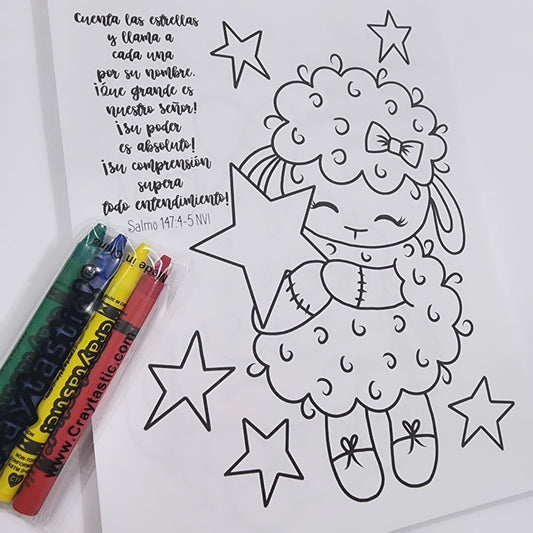 Cuenta las estrellas
y llama a
cada una
por su nombre.
¡Que grande es
nuestro señor!
¡su poder
es absoluto!
¡su comprensión
supera
todo entendimiento!
Salmo 147:4-5 NVI
Made in
Craytastic
www.Craytastic.com